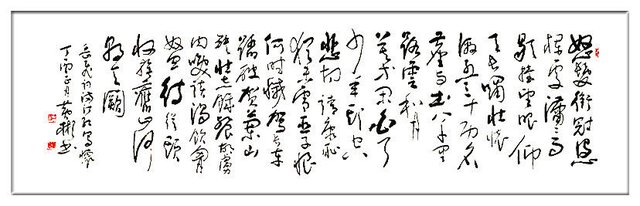 怒髮衝冠憑
欄處瀟瀟雨
歇抬望眼仰
天長嘯壯懷
激烈三十功名
塵與土八千里
路雲和月
莫等閒白了
少年頭空
悲切靖康恥
猶未雪臣子恨
何時滅駕長車
踏破賀蘭山
缺壯志飢餐胡虜
肉笑談渴飲匈
奴血待從頭
收拾舊山河
朝天闕
岳飛詞滿江紅寫懷
丁酉正月書